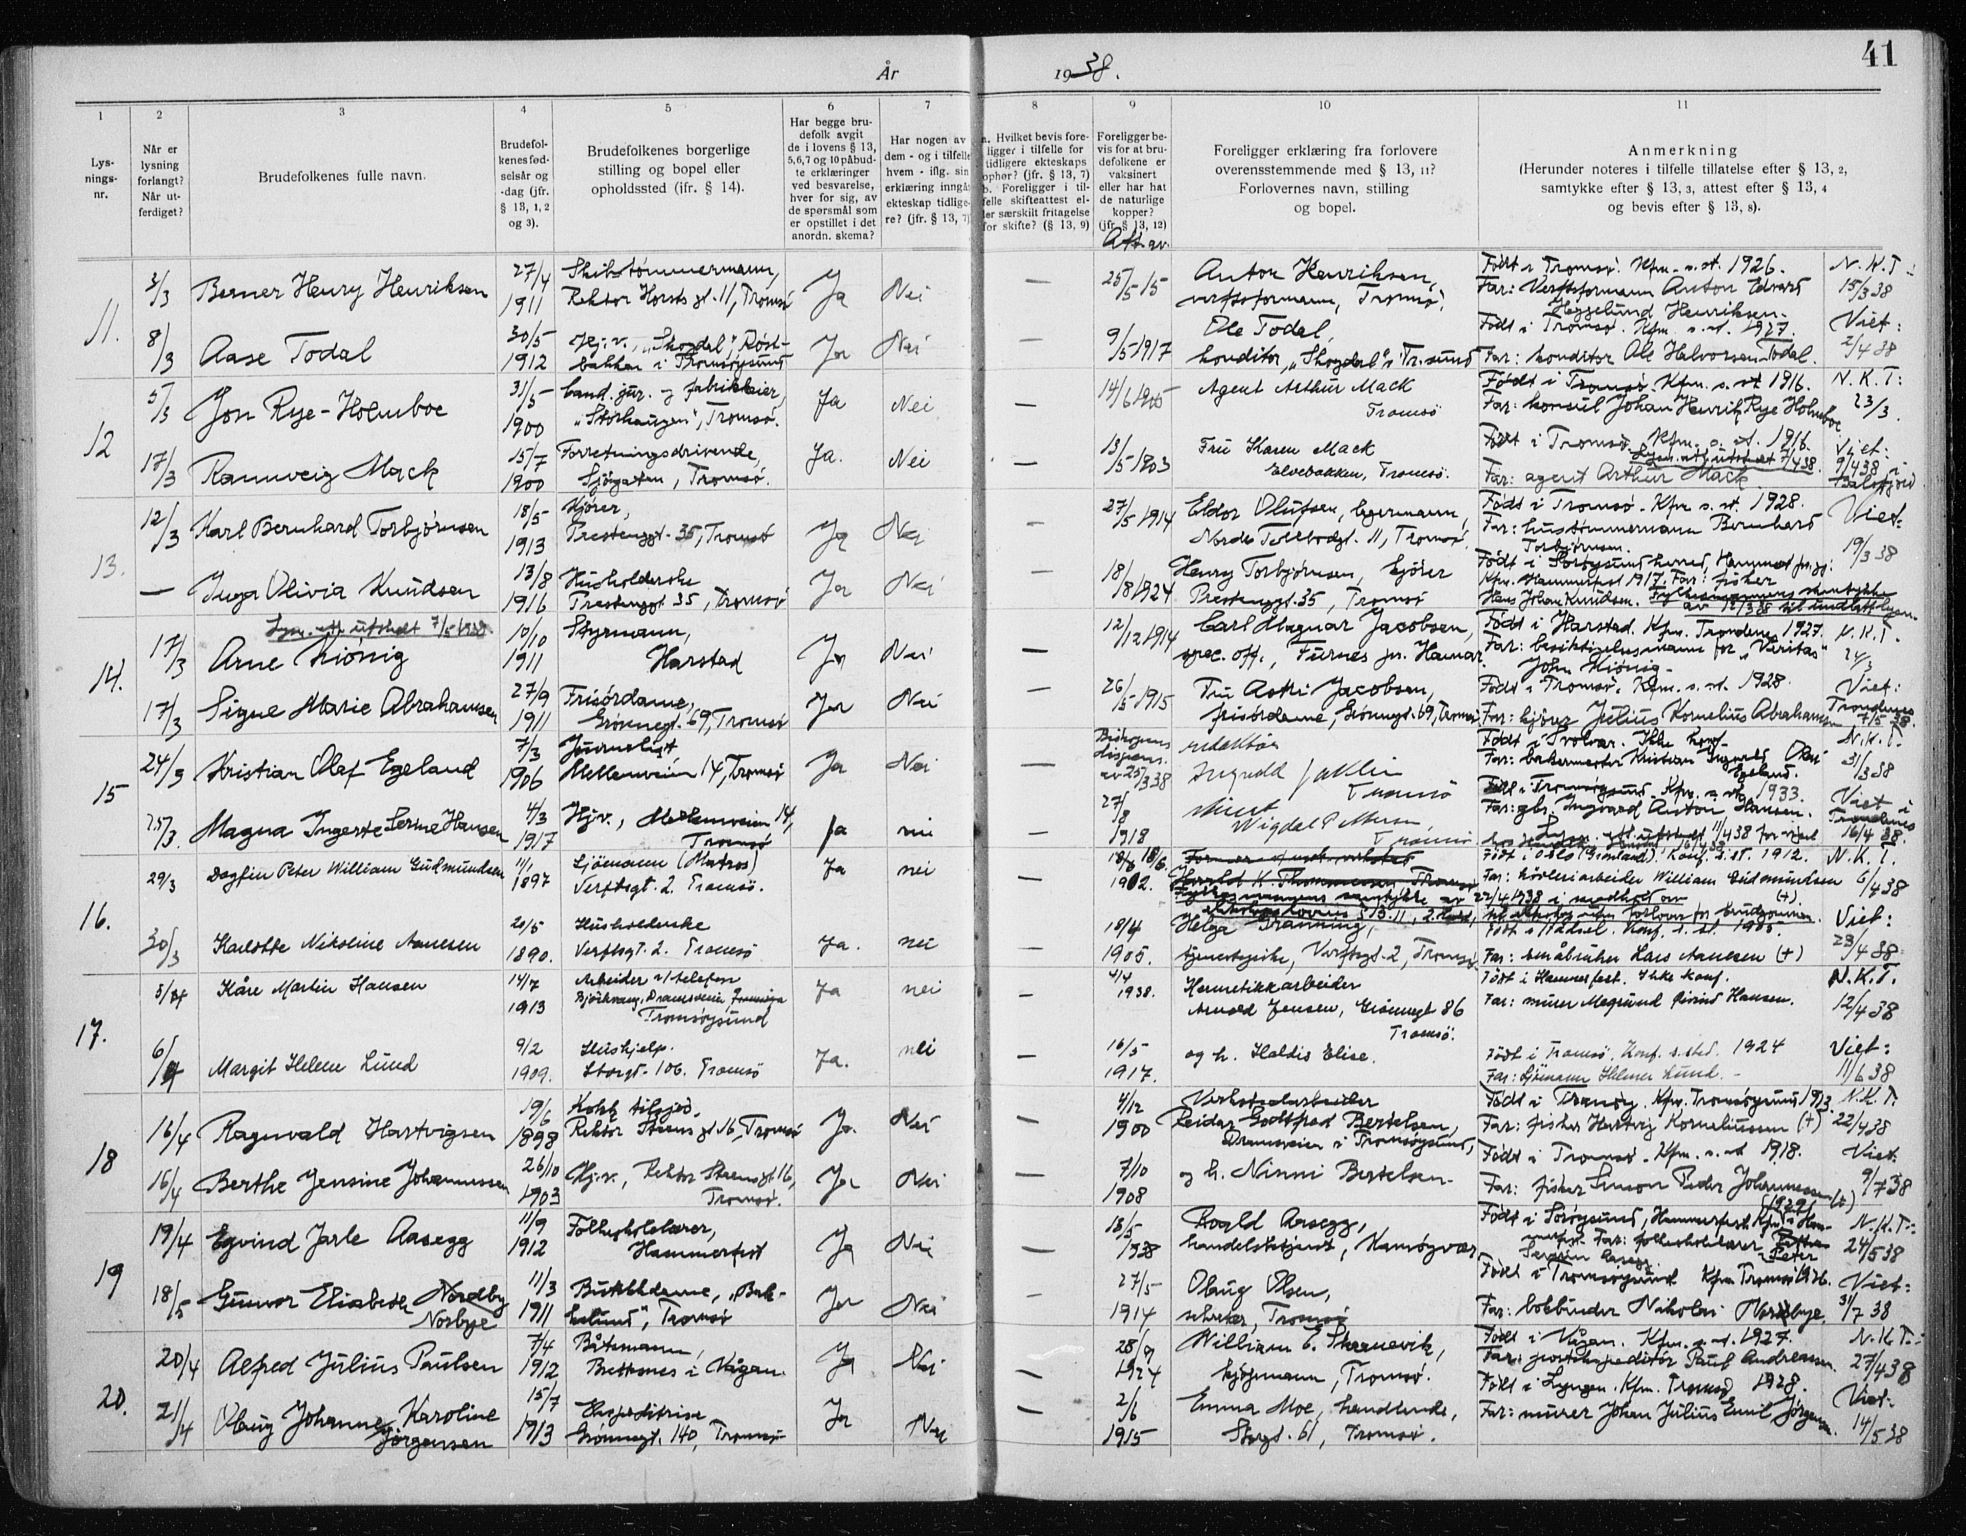 År 1938.
41
1 2 3 4 5 6 7 8 9 10 11
Lys-
nings-
nr.
Når er
lysning
forlangt?
Når ut-
ferdiget?
Brudefolkenes fulle navn.
Brudefol-
kenes fød-
selsår og
-dag (jfr.
§ 13, 1, 2
og 3).
Brudefolkenes borgerlige
stilling og bopel eller
opholdssted (jfr. § 14).
Har begge bru-
defolk avgit
de i lovens § 13,
5,6,7 og 10 påbud-
te erklæringer
ved besvarelse,
hver for sig, av
de spørsmål som
er opstillet i det
anordn. skema?
Har nogen av
dem - og i tilfelle
hvem - iflg. sin
erklæring inngåt
ekteskap tidlige-
re? (jfr. § 13, 7)
a. Hvilket bevis fore-
ligger i tilfelle for
tidligere ekteskaps
ophør? (jfr. § 13, 7)
b. Foreligger i til-
felle skifteattest el-
ler særskilt fritagelse
for skifte? (§ 13, 9)
Foreligger be-
vis for at bru-
defolkene er
vaksinert
eller har hat
de naturlige
kopper?
(jfr. § 13, 12)
Att. av
Foreligger erklæring fra forlovere
overensstemmende med § 13, 11?
Forlovernes navn, stilling
og bopel.
Anmerkning
(Herunder noteres i tilfelle tillatelse efter § 13, 2,
samtykke efter § 13, 3, attest efter § 13, 4
og bevis efter § 13, 8).
11.
3/3 Berner Henry Henriksen
27/4 1911
Skibstømmermann,
Rektor Horsts gt. 11, Tromsø
Ja Nei —
25/5 15
Anton Henriksen,
verftsformann, Tromsø.
Født i Tromsø. Kfm. s. st. 1926.
Far: Verftsformann Anton Edvard
Heggelund Henriksen.
N.K.T.:
15/3 38
8/3 Aase Todal
30/5 1912
Hj.v., "Skogdal", Røst-
bakken i Tromsøysund
Ja Nei —
9/5 1917
Ole Todal,
konditor, "Skogdal" i Tr.sund
Født i Tromsø. Kfm. s. st. 1927.
Far: konditor Ole Halvorsen Todal.
Viet:
2/4 38
12
5/3 Jon Rye-Holmboe
31/5 1900
Cand. jur. og fabrikkeier,
"Storhaugen", Tromsø.
Ja Nei —
14/6 1905
Agent Arthur Mack
Tromsø
Født i Tromsø Kfm. s. st. 1916.
Far: konsul Johan Henrik Rye Holmboe
N.K.T:
23/3.
17/3 Rannveig Mack
15/7 1900
Forretningsdrivende,
Sjøgaten, Tromsø.
Ja. Nei —
13/5 1903
Fru Karen Mack
Elvebakken, Tromsø.
Født i Tromsø. Kfm. s. st. 1916.
Lysn. att. utstedt 7/4 38.
Far: agent Arthur Mack
Viet:
9/4 38 i
Balsfjord
13.
12/3 Karl Bernhard Torbjørnsen
18/5 1913
Kjører,
Prestenggt. 35, Tromsø
Ja Nei —
27/5 1914
Eldor Olufsen, lagermann,
Nordre Tollbodgt. 11, Tromsø.
Født i Tromsø. Kfm s. st. 1928.
Far: hustømmermann Bernhard
Torbjørnsen.
Viet:
19/3 38
— Inga Olivia Knudsen
13/8 1916
Husholderske
Prestenggt 35, Tromsø
Ja Nei —
18/8 1924
Henry Torbjørnsen, kjører
Prestenggt. 35, Tromsø
Født i Sørøysund herred, Hammerfest prgj.
Kfm. Hammerfest 1917. Far: fisker
Hans Johan Knudsen. Fylkesmannens samtykke
av 12/3 38
14.
Lysn. att. utstedt 7/5 1938.
17/3 Arne Kiønig
10/10 1911
Styrmann,
Harstad
Ja Nei —
12/12 1914
Carl Magnar Jacobsen,
spec. off., Furnes pr. Hamar.
Født i Harstad. Kfm. Trondenes 1927.
Far: besiktigelsesmann for "Veritas"
John Kiønig.
N.K.T.
24/3
17/3 Signe Marie Abrahamsen
27/9 1911
Frisørdame,
Grønnegt. 69, Tromsø
Ja Nei —
26/5 1915
Fru Aslli Jacobsen,
frisørdame, Grønnegt. 69, Tromsø.
Født i Tromsø. Kfm. s. st. 1928.
Far: kjører Julius Kornelius Abrahamsen
Viet:
Trondenes
7/5 38.
15
24/3 Kristian Olaf Egeland
7/3 1906
Journalist
Mellemveien 14, Tromsø
Ja Nei —
Biskopens
dispens.
av 25/3 38
redaktør
Ingvald Jaklin
Tromsø
Født i Svolvær. Ikke konf.
Far: bakermester Kristian Ingvald Olai
Egeland.
N.K.T.
31/3 38
25/3. Magna Ingerte Serine Hansen
4/3 1917
Hj.v., Mellemveien 14,
Tromsø
ja nei —
27/8 1918
Wigdal
Tromsø
Født i Tromsøysund. Kfm. s. st. 1933.
Far: gbr. Ingvard Anton Hansen.
Lysn. att. utstedt 11/4 38 for vigsel
Viet i
Trondenes
16/4 38.
16.
29/3 Dagfin Peter William Gudmundsen
11/1 1897
Sjømann (Matros)
Verftsgt. 2. Tromsø.
Ja nei —
18/6 1902.
Harald K. Thommesen Tromsø
Fylkesmannens samtykke av 22/4 1938 i medhold av
ekteskapslovens § 13.11, 2. ledd, til ekteskap uten forlover for brudgommen.
Født i Oslo (Grønland). Konf. s. st. 1912.
Far: høvleriarbeider William Gudmundsen (+).
N.K.T.
6/4 38
30/3 Karlotte Nikoline Aanesen
20/5 1890.
Husholderske
Verftsgt. 2. Tromsø
Ja. nei —
18/4 1905.
Helga Brenning,
tjenestepike, Verftsgt. 2, Tromsø.
Født i Målsel. Konf. s. st. 1905.
Far: småbruker Lars Aanesen (+)
Viet:
23/4 38
17.
5/4 Kåre Martin Hansen
14/7 1913
Arbeider v/telefon
Tromsøysund
Ja nei —
4/4 1938.
Hermetikkarbeider
Arnold Jensen, Grønnegt 86
Tromsø.
Født i Hammerfest. Ikke konf.
Far: murer Magnund Eivind Hansen.
N.K.T.
12/4 38
6/4 Margit Helene Lund
9/2 1909.
Hushjelp.
Storgt. 106. Tromsø
Ja. nei —
16/5 1917.
og h. Haldis Elise.
Født i Tromsø. Konf. s. sted. 1924
Far: Sjømann Helmer Lund. -
Viet:
11/6 38
18
16/4 Ragnvald Hartvigsen
19/6 1898
Kokk tilsjøs,
Rektor Steens gt 16, Tromsø
Ja. Nei —
4/12 1900
Verkstedarbeider
Reidar Godtfred Bertelsen,
Dramsveien i Tromsøysund,
Født i Tranøy. Kfm. Tromsøysund 1913.
Far: fisker Hartvig Korneliussen (+)
N.K.T.
22/4 38
16/4 Berthe Jensine Johannessen
26/10 1903
Hj.v., Rektor Steensgt 16,
Tromsø.
Ja Nei —
7/10 1908
og h. Ninni Bertelsen.
Født i Tromsø. Kfm. s. st 1918.
Far: fisker Simon Peder Johannessen (+)
Viet:
9/7 38
19
19/4 Eyvind Jarle Aasegg
11/9 1912
Folkeskolelærer,
Hammerfest
Ja Nei —
13/5 1938
Roald Aasegg,
handelsbetjent, Hamsøyvær
Født i Sørøysund, Hammerfest. Kfm. i Ham-
merfest (1929). Far: folkeskolelærer Petter
Peter
Severin Aasegg.
N.K.T.:
24/5 38
18/5 Gunvor Elisabeth Nordby
Norbye
11/3 1911
Butikkdame, "Bak-
kelund", Tromsø
Ja Nei —
27/5 1914
Olaug Olsen,
sekretær, Tromsø
Født i Tromsøysund Kfm Tromsø 1926.
Far: bokbinder Nikolai Norbye.
Viet:
31/7 38
20.
20/4 Alfred Julius Paulsen
7/4 1912
Båtsmann,
Brettesnes i Vågan.
Ja Nei —
28/9 1924
William E. Skarnevik,
kjøpmann, Tromsø.
Født i Vågan. Kfm. s. st. 1927.
Far: postekspeditør Paul Andreassen.
N.K.T.:
27/4 38
21/4 Olaug Johanne Karoline
Jørgensen
15/7 1913
Ekspeditrise
Grønnegt. 140, Tromsø
Ja Nei —
2/6 1915
Emma Moe, handlende,
Storgt. 61, Tromsø.
Født i Lyngen. Kfm. Tromsø 1928.
Far: murer Johan Julius Emil Jørgensen.
Viet:
14/5 38